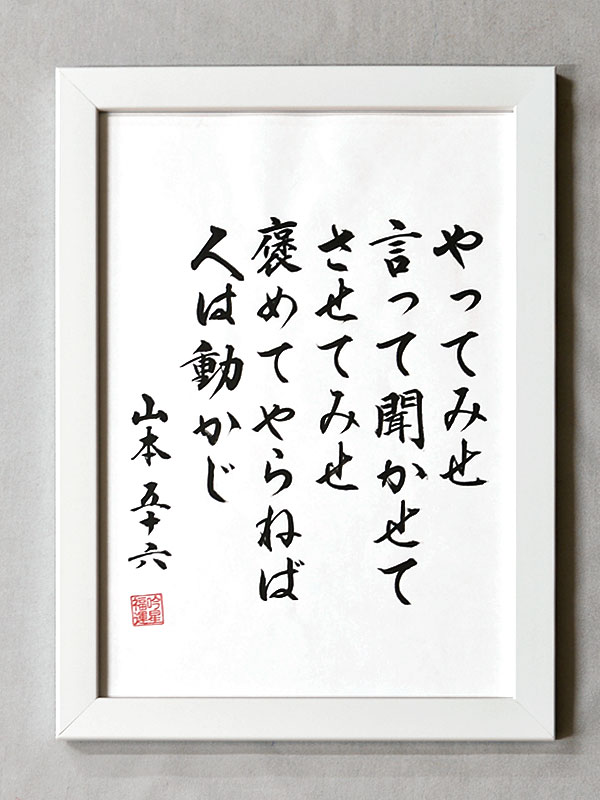 やってみせ
言って聞かせて
させてみせ
褒めてやらねば
人は動かじ
山本五十六
吟星
福運